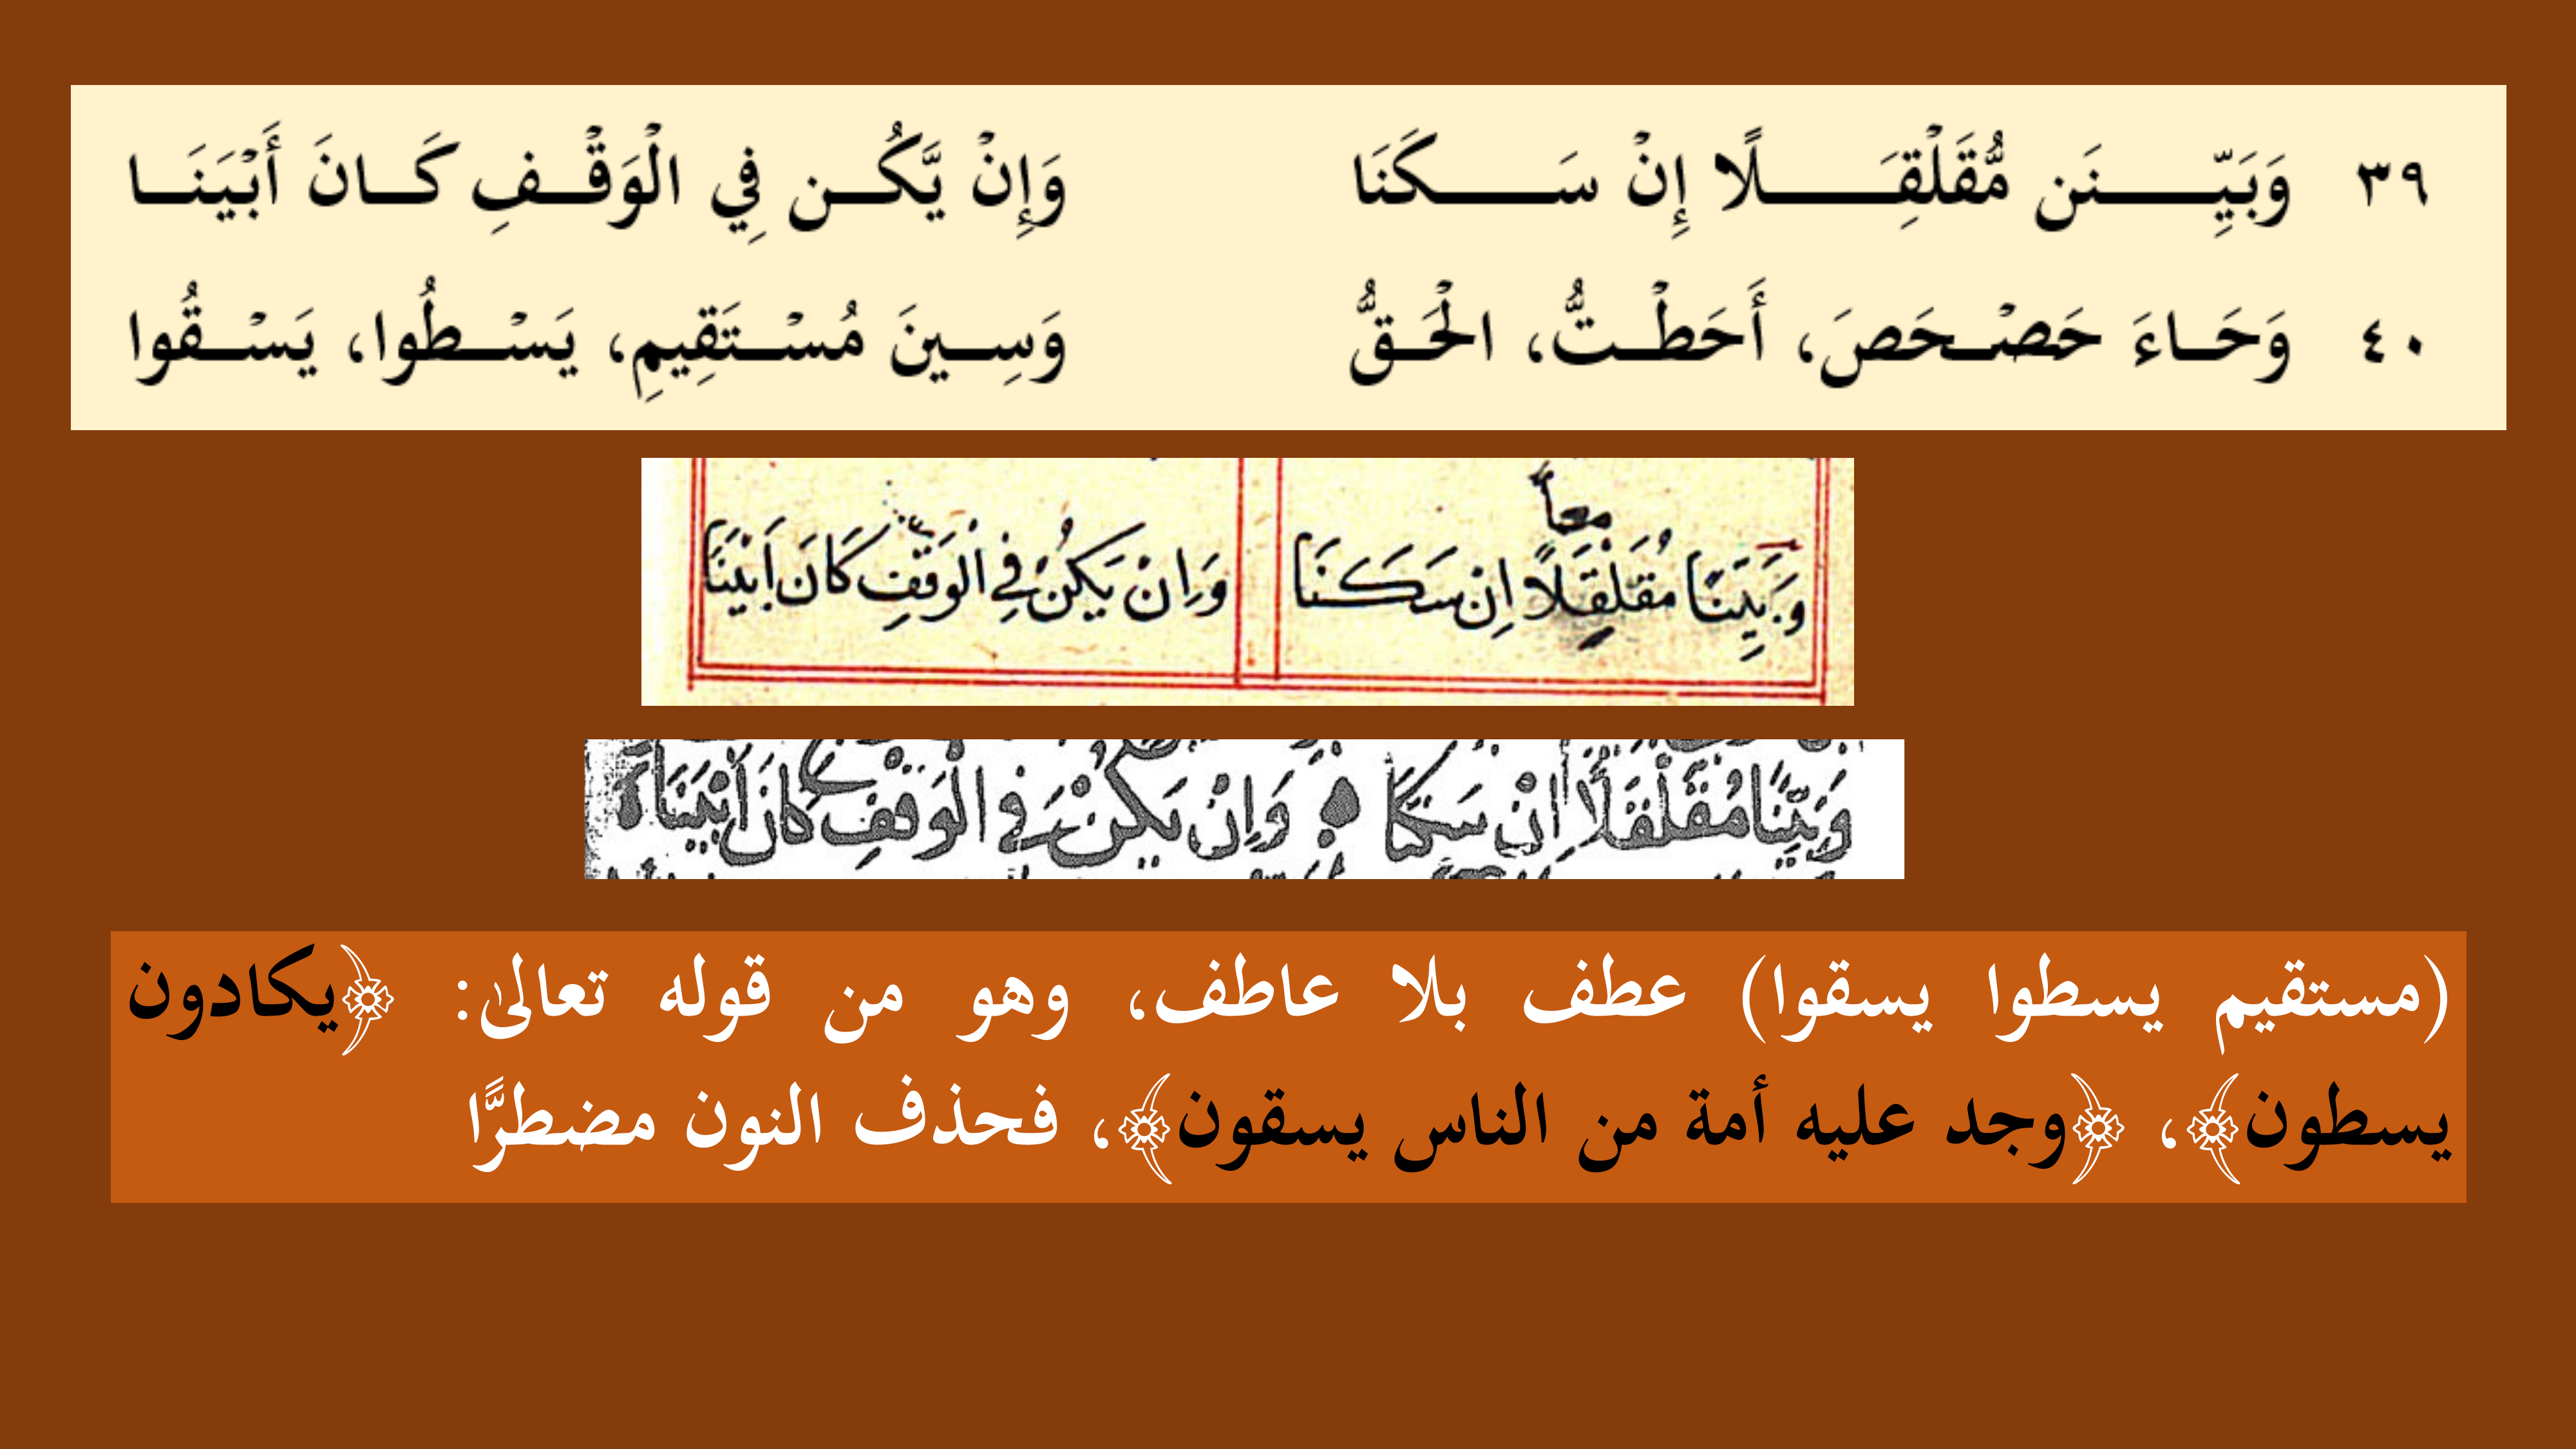 ٣٩ وَبَيِّنَن مُّقَلْقِلًا إِنْ سَكَنَا وَإِنْ يَّكُن فِي الْوَقْفِ كَانَ أَبْيَنَا
٤٠ وَحَاءَ حَصْحَصَ، أَحَطْتُّ، الْحَقُّ وَسِينَ مُسْتَقِيمِ، يَسْطُوا، يَسْقُوا
معاً
وَبَيِّنَنَا مُقَلْقَِلًا اِنْ سَكَنَا وَاِنْ يَكُنْ فِي الْوَقْفِ كَانَ اَبْيَنَا
وَبَيِّنًا مُقَلْقَلًا اِنْ سَكَنَا وَاِنْ يَكُنْ فِي الْوَقْفِ كَانَ اَبْيَنَا
(مستقيم يسطوا يسقوا) عطف بلا عاطف، وهو من قوله تعالىٰ: ﴿يكادون
يسطون﴾، ﴿وجد عليه أمة من الناس يسقون﴾، فحذف النون مضطرًّا